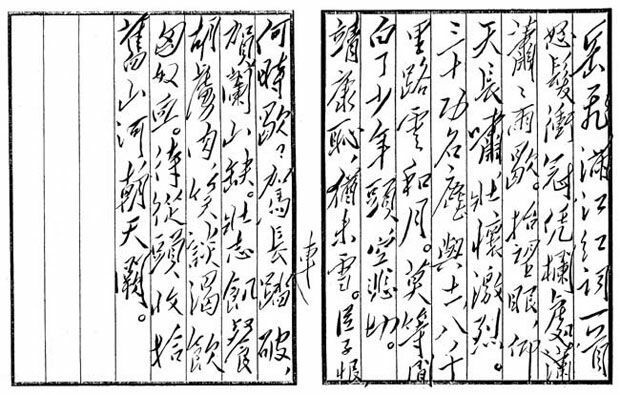 岳飛滿江紅詞一首
怒髮衝冠凭欄處瀟
瀟〻雨歇。抬望眼,仰
天長嘯,壯懷激烈。
三十功名塵與土,八千
里路雲和月。莫等閒
白了少年頭,空悲切。
靖康恥,猶未雪。臣子恨,
何時歇〻駕長車踏破,
賀蘭山缺。壯志飢餐
胡虜肉,笑談渴飲
匈奴血。待從頭收拾
舊山河,朝天闕。